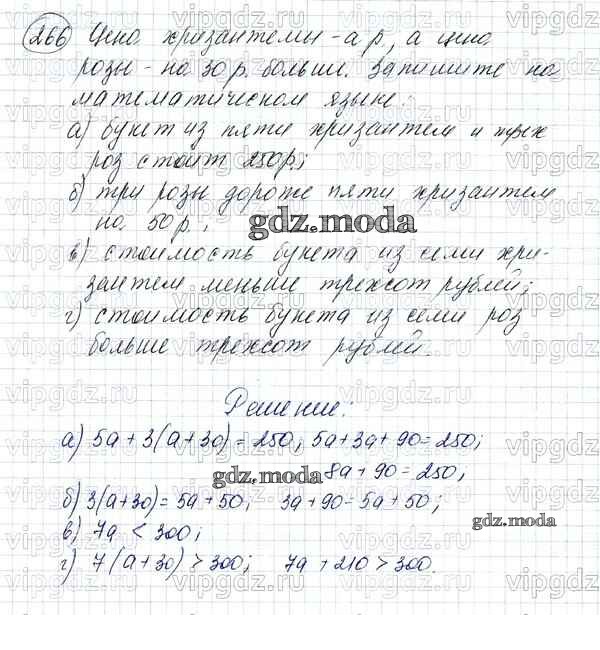 266 Цена хризантемы - а р., а цена
розы - на 30 р. больше. Запишите на
математическом языке:
а) букет из пяти хризантем и трех
роз стоит 250р.;
б) три розы дороже пяти хризантем
на 50 р.;
gdz.moda
в) стоимость букета из семи хри-
зантем меньше трехсот рублей;
г) стоимость букета из семи роз
больше трехсот рублей.
Решение:
а) 5а + 3(а + 30) = 250; 5а + 3а + 90 = 250;
8а + 90 = 250;
gdz.moda
б) 3(а+30) = 5а + 50; 3а + 90 = 5а + 50;
gdz.moda
в) 7а < 300;
г) 7(а + 30) > 300; 7а + 210 > 300.